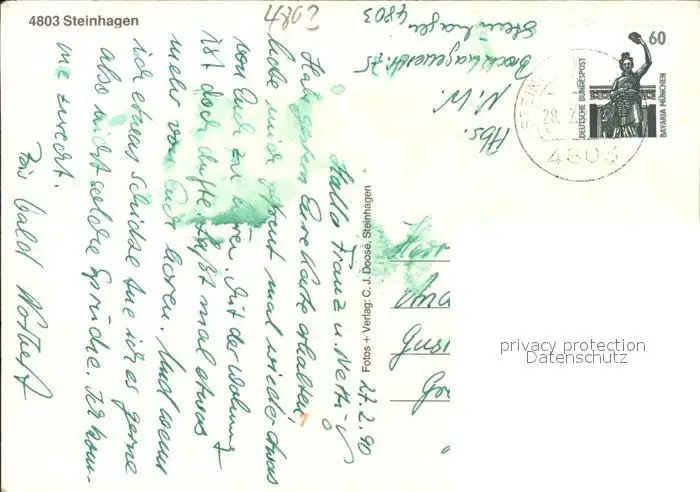 4803 Steinhagen
4803
Abs.
N. W.
Brockhagenerstr. 75
Steinhagen
4803
60
DEUTSCHE BUNDESPOST
BAVARIA MÜNCHEN
STEIN
28. 2.
4803
27.2.90
Hallo Franz u. Netti
Hab gestern Eure Karte erhalten,
habe mich gefreut mal wieder etwas
von Euch zu hören. Mit der Wohnung
ist doch dufte. Laßt mal etwas
mehr von Euch hören. Und wenn
ich etwas schicke tue ich es gerne
also nicht solche Sprüche. Ich kom-
me zurecht.
Bis bald Norbert
Fotos + Verlag: C. J. Doose, Steinhagen
privacy protection
Datenschutz